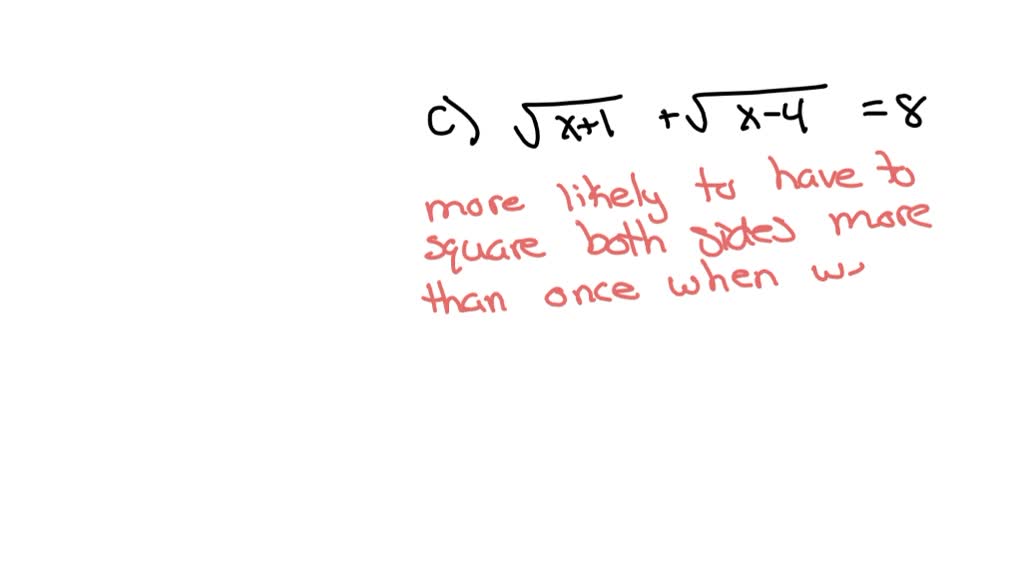 c) √x+1 + √x-4 = 8
more likely to have to
square both sides more
than once when